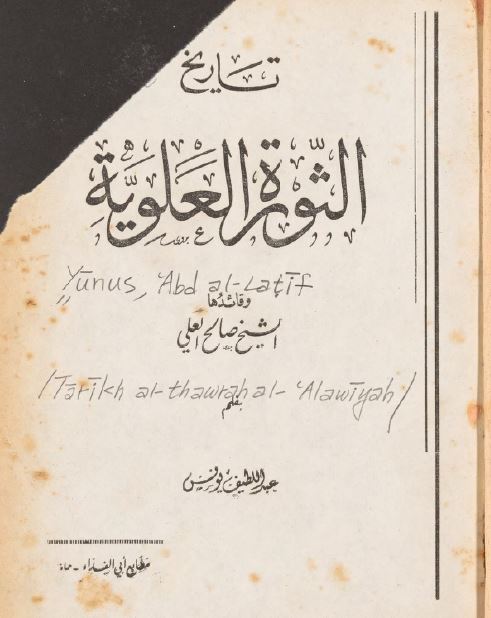 تاريخ
الثّورة العَلَويَّةِ
Yūnus, ʿAbd al-Laṭīf
وقائدُها
الشيخ صالح العلي
/Tārīkh al-thawrah al-ʿAlawīyah/
بقلم
عبد اللطيف يونس
مطابع أبي الفداء - حماة